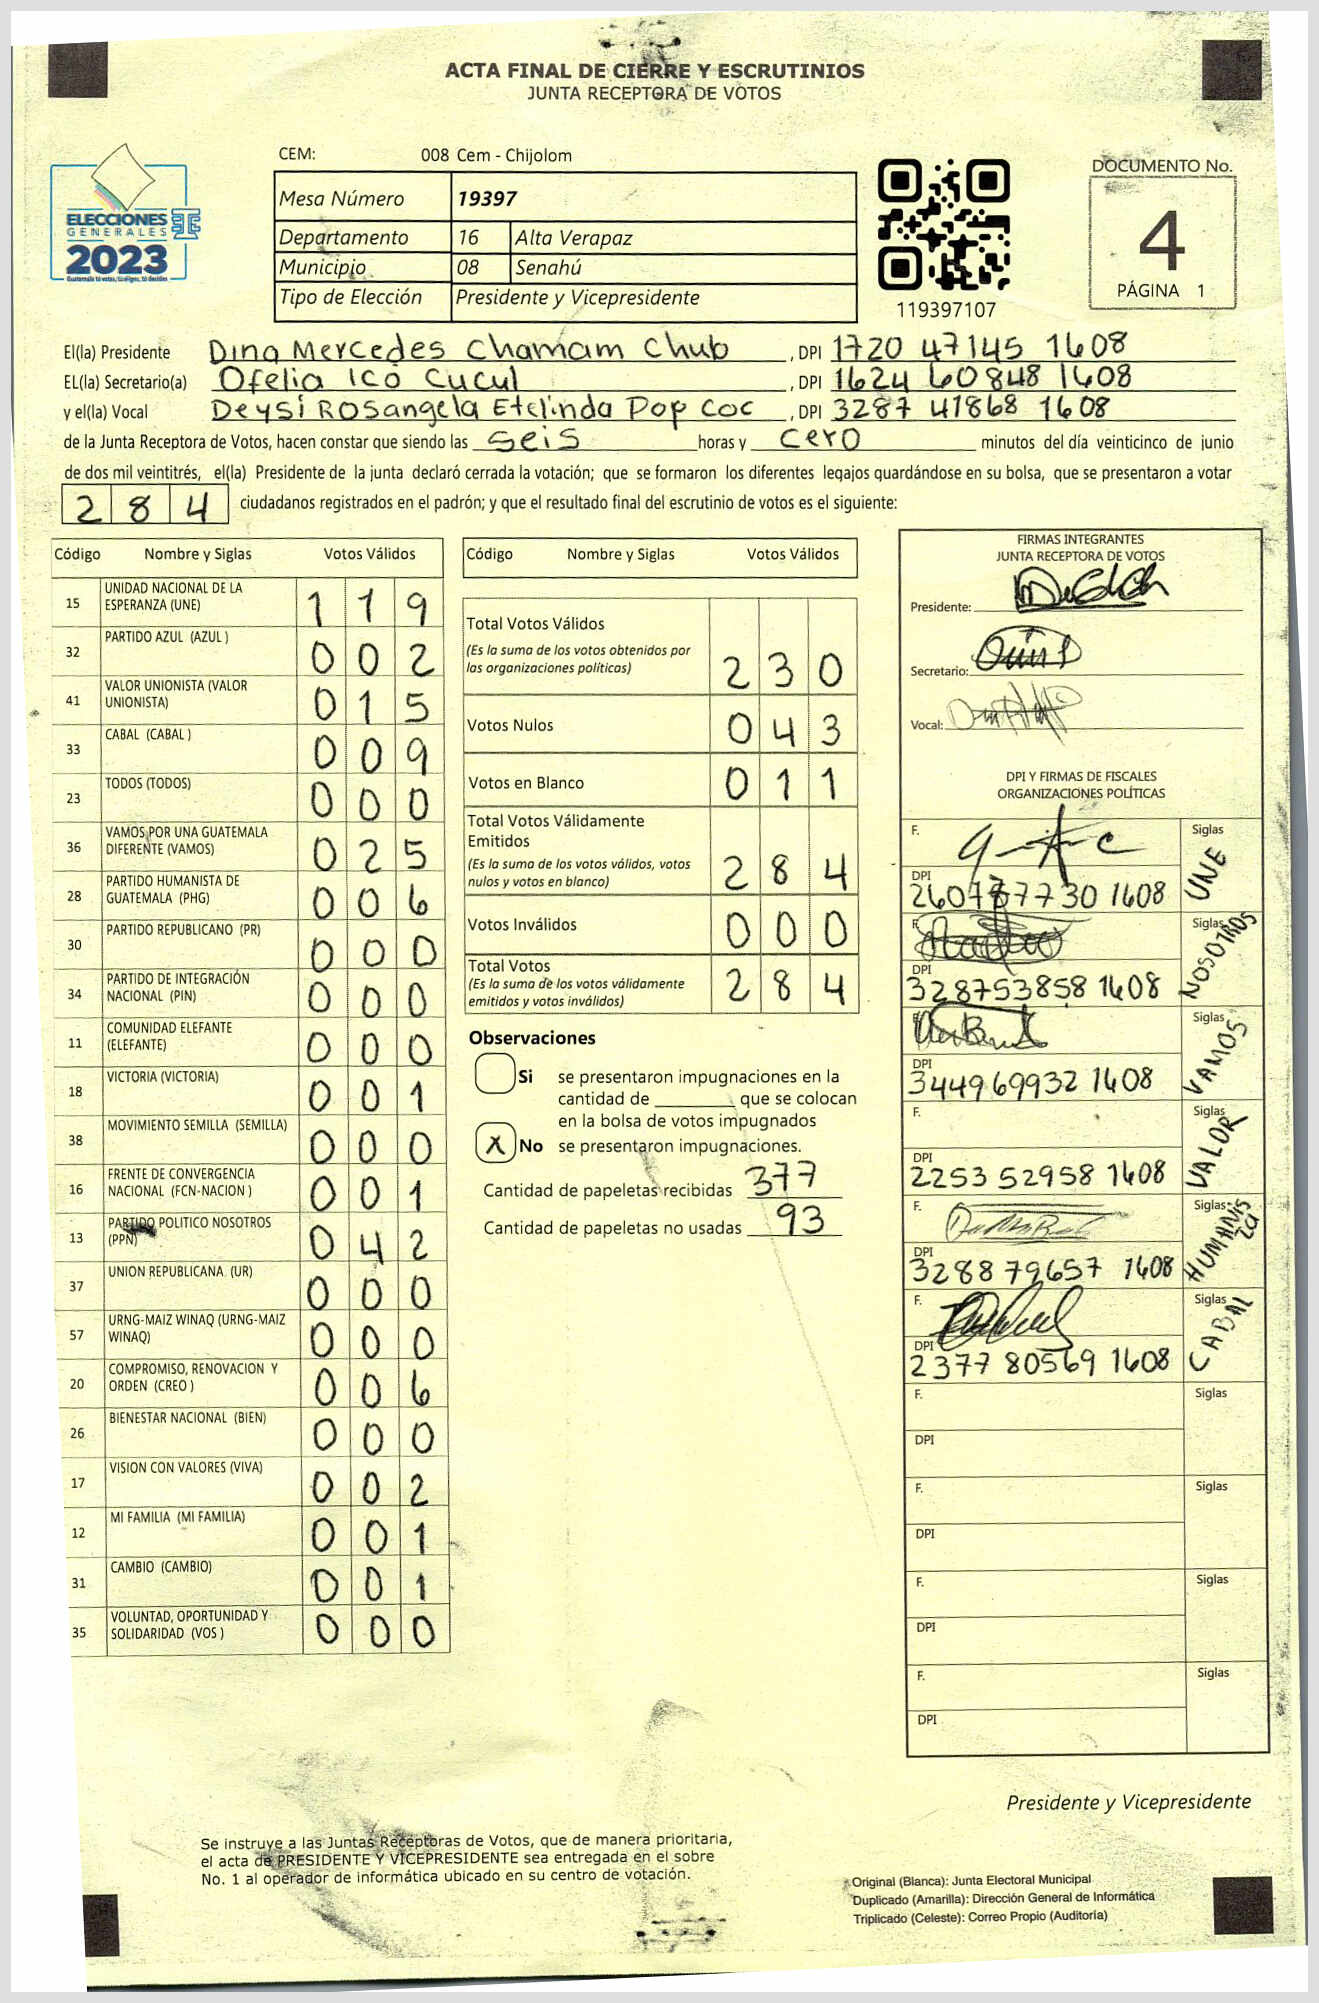 ACTA FINAL DE CIERRE Y ESCRUTINIOS
JUNTA RECEPTORA DE VOTOS
ELECCIONES
GENERALES
2023
CEM: 008 Cem - Chijolom
Mesa Número 19397
Departamento 16 Alta Verapaz
Municipio 08 Senahú
Tipo de Elección Presidente y Vicepresidente
119397107
DOCUMENTO No.
4
PÁGINA 1
El(la) Presidente Dina Mercedes Chamam Chub , DPI 1720 47145 1608
EL(la) Secretario(a) Ofelia Icó Cucul , DPI 1624 60848 1608
y el(la) Vocal Deysi Rosangela Etelinda Pop Coc , DPI 3287 41868 1608
de la Junta Receptora de Votos, hacen constar que siendo las seis horas y cero minutos del día veinticinco de junio
de dos mil veintitrés, el(la) Presidente de la junta declaró cerrada la votación; que se formaron los diferentes legajos guardándose en su bolsa, que se presentaron a votar
284 ciudadanos registrados en el padrón; y que el resultado final del escrutinio de votos es el siguiente:
Código Nombre y Siglas Votos Válidos
15 UNIDAD NACIONAL DE LA ESPERANZA (UNE) 119
32 PARTIDO AZUL (AZUL ) 002
41 VALOR UNIONISTA (VALOR UNIONISTA) 015
33 CABAL (CABAL ) 009
23 TODOS (TODOS) 000
36 VAMOS POR UNA GUATEMALA DIFERENTE (VAMOS) 025
28 PARTIDO HUMANISTA DE GUATEMALA (PHG) 006
30 PARTIDO REPUBLICANO (PR) 000
34 PARTIDO DE INTEGRACIÓN NACIONAL (PIN) 000
11 COMUNIDAD ELEFANTE (ELEFANTE) 000
18 VICTORIA (VICTORIA) 001
38 MOVIMIENTO SEMILLA (SEMILLA) 000
16 FRENTE DE CONVERGENCIA NACIONAL (FCN-NACION ) 001
13 PARTIDO POLITICO NOSOTROS (PPN) 042
37 UNION REPUBLICANA (UR) 000
57 URNG-MAIZ WINAQ (URNG-MAIZ WINAQ) 000
20 COMPROMISO, RENOVACION Y ORDEN (CREO ) 006
26 BIENESTAR NACIONAL (BIEN) 000
17 VISION CON VALORES (VIVA) 002
12 MI FAMILIA (MI FAMILIA) 001
31 CAMBIO (CAMBIO) 001
35 VOLUNTAD, OPORTUNIDAD Y SOLIDARIDAD (VOS ) 000
Código Nombre y Siglas Votos Válidos
Total Votos Válidos 230
(Es la suma de los votos obtenidos por
las organizaciones políticas)
Votos Nulos 043
Votos en Blanco 011
Total Votos Válidamente
Emitidos 284
(Es la suma de los votos válidos, votos
nulos y votos en blanco)
Votos Inválidos 000
Total Votos 284
(Es la suma de los votos válidamente
emitidos y votos inválidos)
Observaciones
Si se presentaron impugnaciones en la
cantidad de ________ que se colocan
en la bolsa de votos impugnados
X No se presentaron impugnaciones.
Cantidad de papeletas recibidas 377
Cantidad de papeletas no usadas 93
FIRMAS INTEGRANTES
JUNTA RECEPTORA DE VOTOS
Presidente:
Secretario:
Vocal:
DPI Y FIRMAS DE FISCALES
ORGANIZACIONES POLÍTICAS
F. Siglas UNE
DPI 1608
F. Siglas NOSOTROS
DPI 328753858 1608
F. Siglas VAMOS
DPI 344969932 1608
F. Siglas VALOR
DPI 2253 52958 1608
F. Siglas HUMANIS
DPI 3288 79657 1608
F. Siglas CABAL
DPI 2377 80569 1608
F. Siglas
DPI
F. Siglas
DPI
F. Siglas
DPI
F. Siglas
DPI
Presidente y Vicepresidente
Se instruye a las Juntas Receptoras de Votos, que de manera prioritaria,
el acta de PRESIDENTE Y VICEPRESIDENTE sea entregada en el sobre
No. 1 al operador de informática ubicado en su centro de votación.
Original (Blanca): Junta Electoral Municipal
Duplicado (Amarilla): Dirección General de Informática
Triplicado (Celeste): Correo Propio (Auditoría)